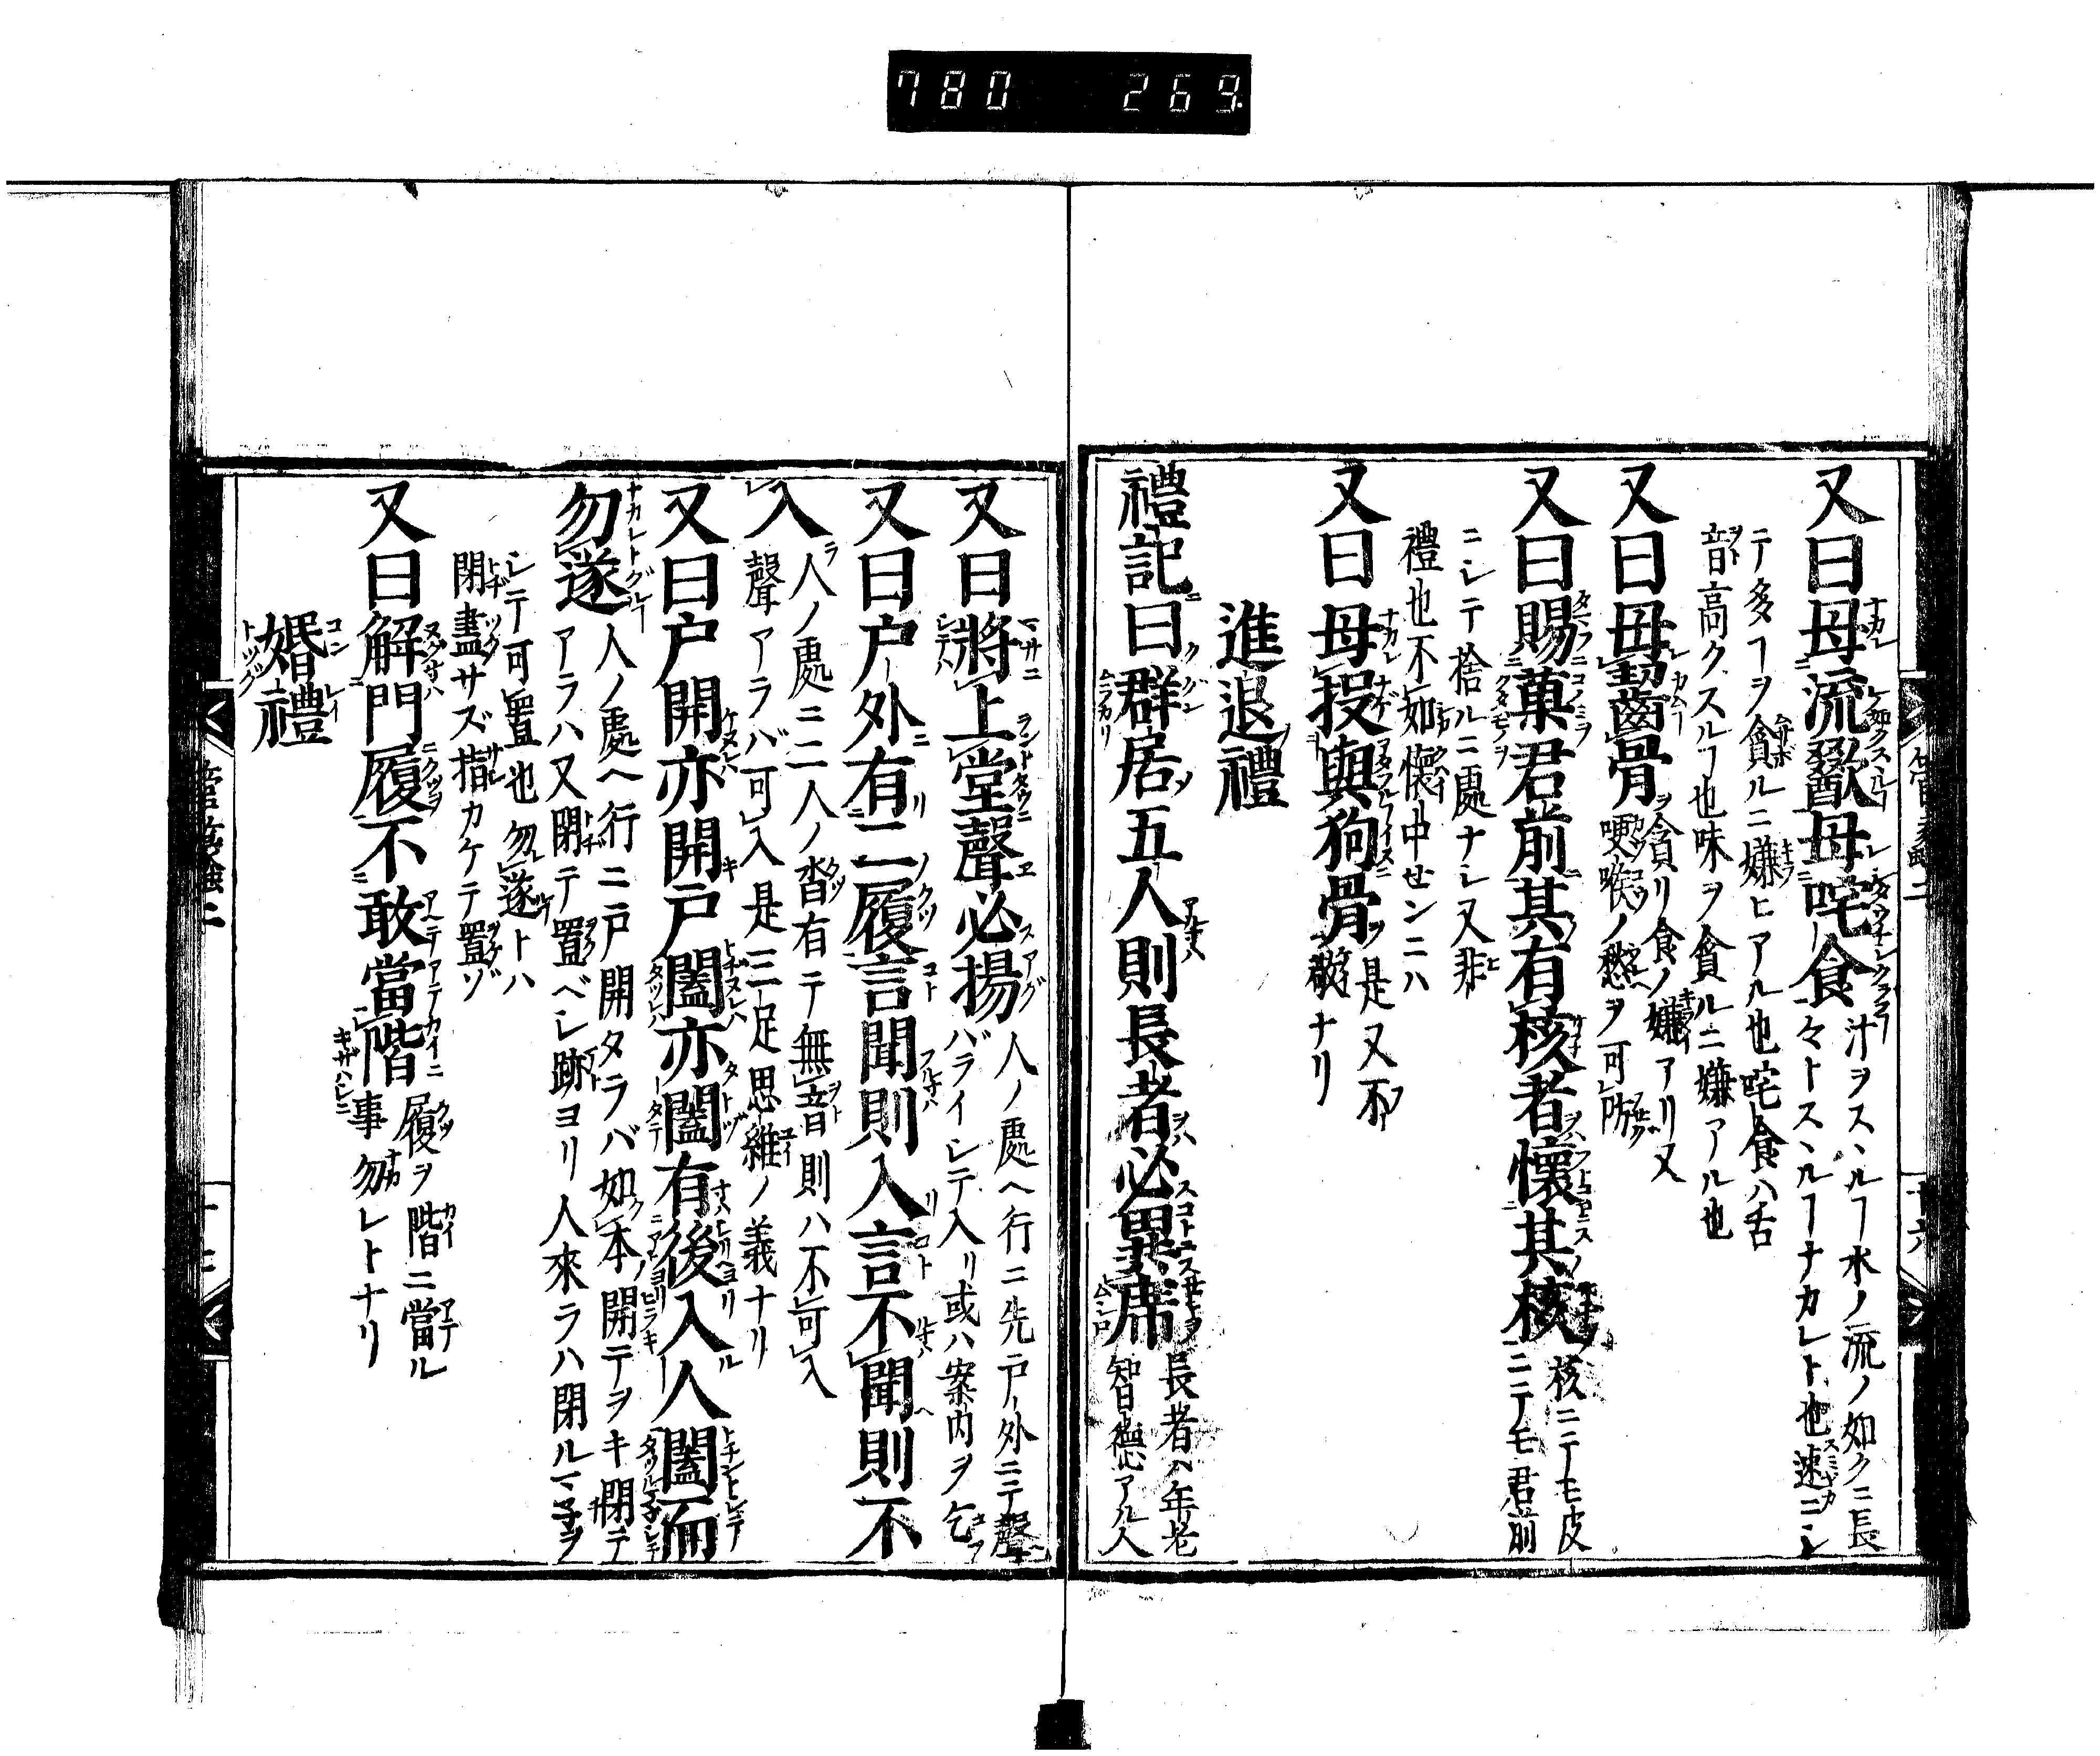 780 269
又曰毋流歠毋咤食 汁ヲスヽルヿ水ノ流ノ如クニ長
々トスヽルヿナカレト也速ニシ
テ多ヿヲ貪ルニ嫌ヒアル也咤食ハ舌
音高クスルヿ也味ヲ貪ルニ嫌アル也
又曰毋齧骨 貪リ食ノ嫌アリ又
哽喉ノ愁ヲ可防
又曰賜菓君前其有核者懷其核 核ニテモ皮
ニテモ君前
ニシテ捨ルニ處ナシ又非
禮也不如懷中センニハ
又曰毋投與狗骨 是又不
敬ナリ
進退禮
禮記曰群居五人則長者必異席 長者ハ年老
智德アル人
又曰將上堂聲必揚 人ノ處ヘ行ニ先戸ノ外ニテ聲
バライシテ入リ或ハ案内ヲ乞
又曰户外有二履言聞則入言不聞則不
入 人ノ處ニ二人ノ沓有テ無音則ハ不可入
聲アラバ可入是三足思維ノ義ナリ
又曰户開亦開戸闔亦闔有後入人闔而
勿遂 人ノ處ヘ行ニ戸開タラバ如本開テヲキ閉テ
アラハ又閉テ置ベシ跡ヨリ人來ラハ閉ルマ子ヲ
シテ可置也勿遂トハ
閉盡サズ指カケテ置ゾ
又曰解門履不敢當階 履ヲ階ニ當ル
事勿レトナリ
婚禮